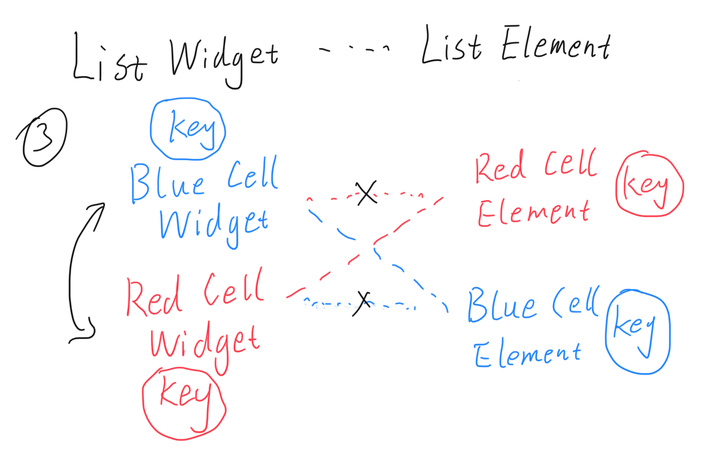 List Widget ---- List Element
3
key
Blue Cell
Widget
Red Cell
Element
key
Red Cell
Widget
key
Blue Cell
Element
key